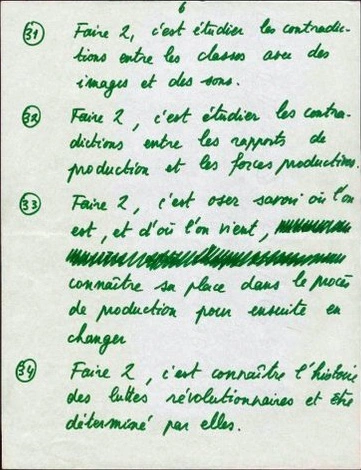 6
31 Faire 2, c'est étudier les contradic-
tions entre les classes avec des
images et des sons.
32 Faire 2, c'est étudier les contra-
dictions entre les rapports de
production et les forces productives.
33 Faire 2, c'est oser savoir où l'on
est, et d'où l'on vient,
connaître sa place dans le procès
de production pour ensuite en
changer
34 Faire 2, c'est connaître l'histoire
des luttes révolutionnaires et être
déterminé par elles.